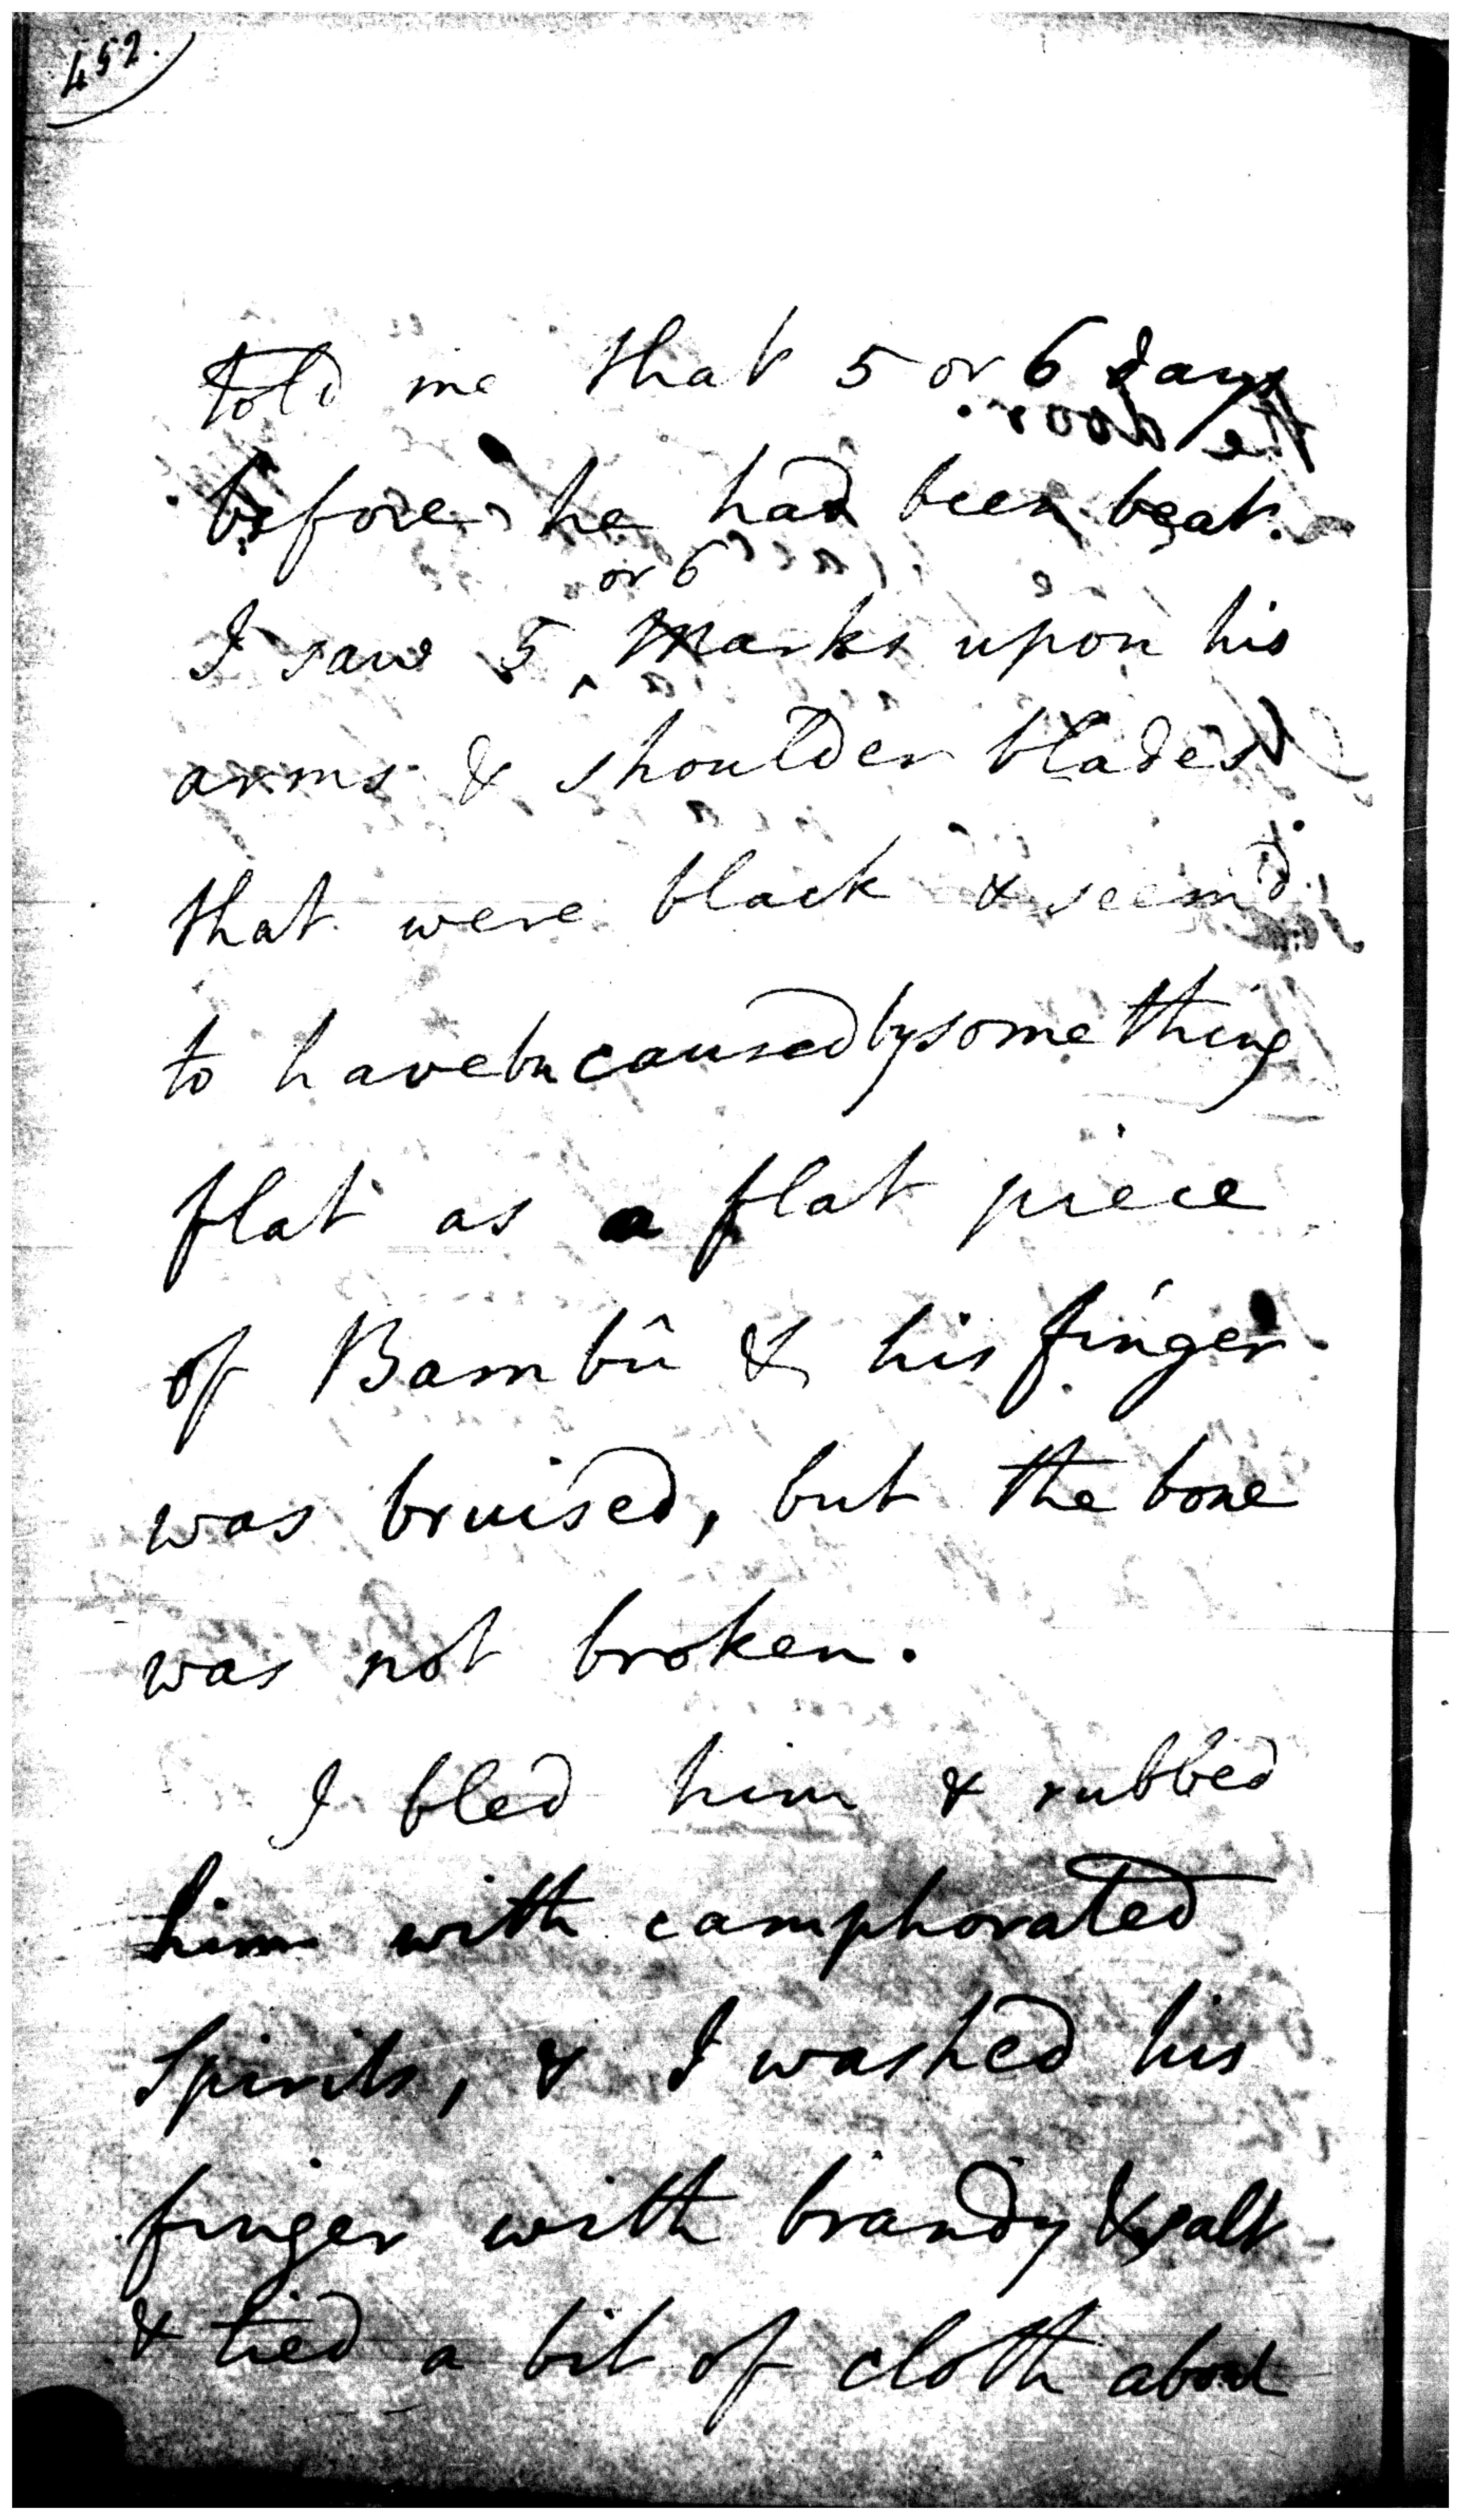 452.
told me that 5 or 6 days
before he had been beat.
or 6
I saw 5 ^ Marks upon his
arms & shoulder blades
that were black & seem'd
to have bn caused by something
flat as a flat piece
of Bambû & his finger
was bruised, but the bone
was not broken.
I bled him & rubbed
him with camphorated
Spirits, & I washed his
finger with brandy & salt
& tied a bit of cloth about